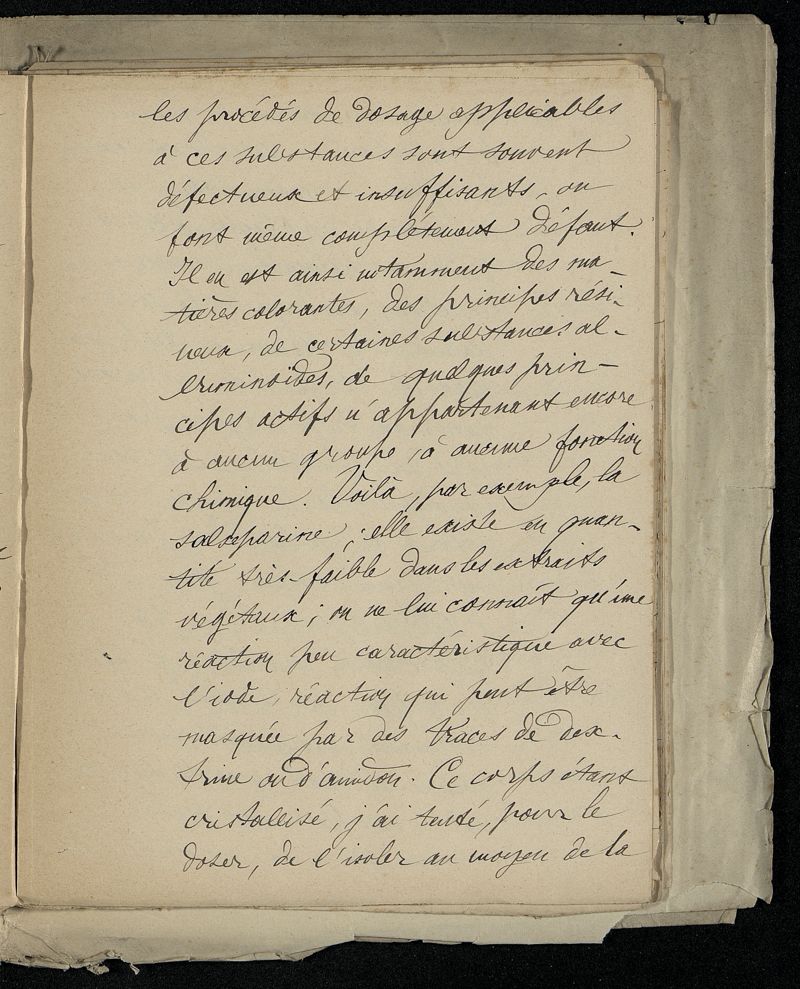 les procédés de dosage applicables
à ces substances sont souvent
défectueux et insuffisants, ou
font même complétement défaut.
Il en est ainsi notamment des ma-
tières colorantes, des principes rési-
neux, de certaines substances al-
buminoïdes, de quelques prin-
cipes actifs n'appartenant encore
à aucun groupe, à aucune fonction
chimique. Voilà, par exemple, la
salseparine ; elle existe en quan-
tité très-faible dans les extraits
végétaux ; on ne lui connaît qu'une
réaction peu caractéristique avec
l'iode, réaction qui peut être
masquée par des traces de dex-
trine ou d'amidon. Ce corps étant
cristallisé, j'ai tenté, pour le
doser, de l'isoler au moyen de la